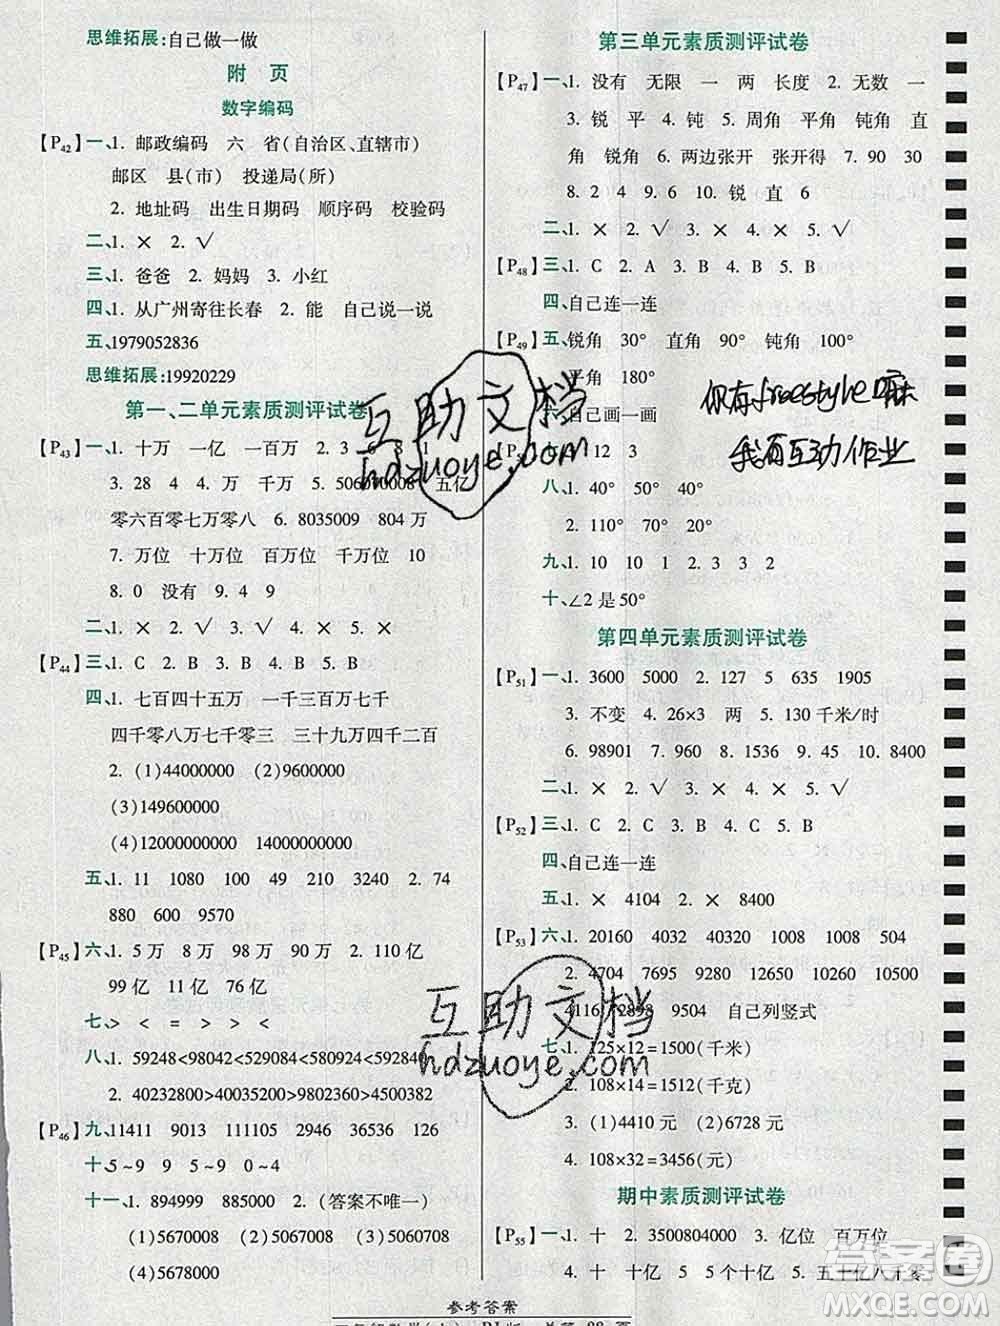 思维拓展:自己做一做
附 页
数字编码
【P42】一、1. 邮政编码 六 省(自治区、直辖市)
邮区 县(市) 投递局(所)
2. 地址码 出生日期码 顺序码 校验码
二、1. × 2. √
三、1. 爸爸 2. 妈妈 3. 小红
四、1. 从广州寄往长春 2. 能 自己说一说
五、1979052836
思维拓展:19920229
第一、二单元素质测评试卷
【P43】一、1. 十万 一亿 一百万 2. 3 6 8 1
3. 28 4 4. 万 千万 5. 506070008 五亿
零六百零七万零八 6. 8035009 804 万
7. 万位 十万位 百万位 千万位 10
8. 0 没有 9. 4 9
二、1. × 2. √ 3. √ 4. × 5. ×
【P44】三、1. C 2. B 3. B 4. B 5. C
四、1. 七百四十五万 一千三百万七千
四千零八万七千零三 三十九万四千二百
2. (1)44000000 (2)9600000
(3)149600000
(4)12000000000 14000000000
五、1. 11 1080 100 1500 360 2. 74
880 600 9570
【P45】六、1. 5 万 8 万 98 万 90 万 2. 110 亿
99 亿 11 亿 76 亿
七、> < = > > <
八、1. 59248<98042<529840<580924<592840
2. 40232800>40035200>9803200>4500382
【P46】九、11411 9013 111105 2946 36535 126
十、5~9 9 5~9 0~4
十一、1. 894999 885000 2. (答案不唯一)
(1)5670008 (2)5067008 (3)5067080
(4)5678000
第三单元素质测评试卷
【P47】一、1. 没有 无限 一 两 长度 2. 无数 一
3. 锐 平 4. 钝 5. 周角 平角 钝角 直
角 锐角 6. 两边张开 张开得 7. 90 30
8. 2 4 9. 6 10. 锐 直 6
二、1. × 2. √ 3. √ 4. × 5. ×
【P48】三、1. C 2. A 3. C 4. C 5. B
四、自己连一连
【P49】五、锐角 30° 直角 90° 钝角 100°
平角 180°
六、自己画一画
12 3
八、1. 40° 50° 40°
2. 110° 70° 20°
九、1. 10 10 1 2. 3 3 2
十、∠2 是 50°
第四单元素质测评试卷
【P51】一、1. 3600 5000 2. 127 5 635 1905
3. 不变 4. 26×3 两 5. 130 千米/时
6. 98901 7. 960 8. 1536 9. 45 10. 8400
二、1. × 2. √ 3. √ 4. × 5. √
【P52】三、1. C 2. C 3. B 4. B 5. C
四、自己连一连
五、1. × 4104 2. × 8400
【P53】六、1. 20160 4032 40320 1008 1008 504
2. 4704 7695 9280 12650 10260 10500
4116 12898 9504 自己列竖式
七、1. 125×12=1500(千米)
2. 108×14=1512(千克)
3. (1)4410 元 (2)6728 元
4. 108×32=3456(元)
期中素质测评试卷
【P55】一、1. 十 2. 3500804000 3. 亿位 百万位
4. 十 十亿 5. 五十亿八千零
参考答案
互助文档
hdzuoye.com
互助文档
hdzuoye.com
你有freestyle嘛
我有互动作业
答案圈